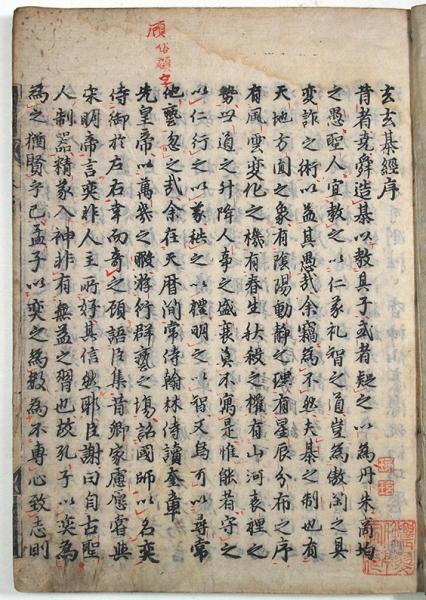 玄玄棊經序
昔者堯舜造棊以教其子或者疑之以為丹朱商均
之愚聖人宜教之以仁義礼智之道豈為傲閑之具
變詐之術以益其愚哉余竊為不然夫棊之制也有
天地方圓之象有陰陽動静之理有星辰分布之序
有風雲變化之機有春生秋殺之權有山河表裡之
勢世道之升降人事之盛衰莫不寓是惟能者守之
以仁行之以義秩之以禮明之以智又烏可以尋常
他藝忽之哉余在天曆间常侍翰林侍讀奎章
先皇帝以萬幾之暇游行群藝之場詔國師以名奕
侍御於左右幸而奇之顧語臣集昔卿家虞愿嘗與
宋明帝言奕非人主所好其信然耶臣謝曰自古聖
人制器精義入神非有無益之習也故孔子以奕為
為之猶賢乎已孟子以奕之為数為不專心致志則
顧俗顧字